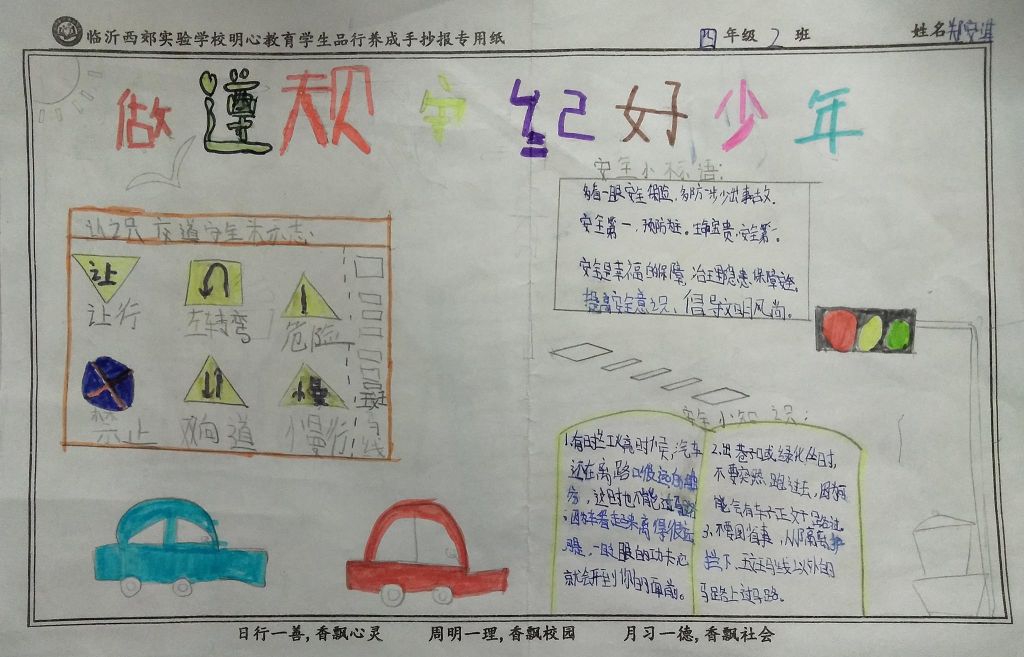 临沂西郊实验学校明心教育学生品行养成手抄报专用纸
四年级2班
姓名
做遵规守纪好少年
安全小标语:
多看一眼安全保险,多防一步少出事故.
安全第一,预防
安全第一。
安全是幸福的保障,治理隐患保障
提高安全意识,倡导文明风尚。
认识交道安全标志:
让
让行
左转弯
危险
禁止
双向道
慢
慢行
安全小知识:
1.有时拦
汽车
还在离路口很远的地
方,这时也不能过马路
,因车看起来离得很远
眼的功夫它
就会开到你的面前。
2.出巷子口或绿化丛时,
不要突然跑过去,因为
能会有车子正
3.不要图省事,从隔离护
栏下、
马线以外的
马路上过马路。
日行一善,香飘心灵 周明一理,香飘校园 月习一德,香飘社会